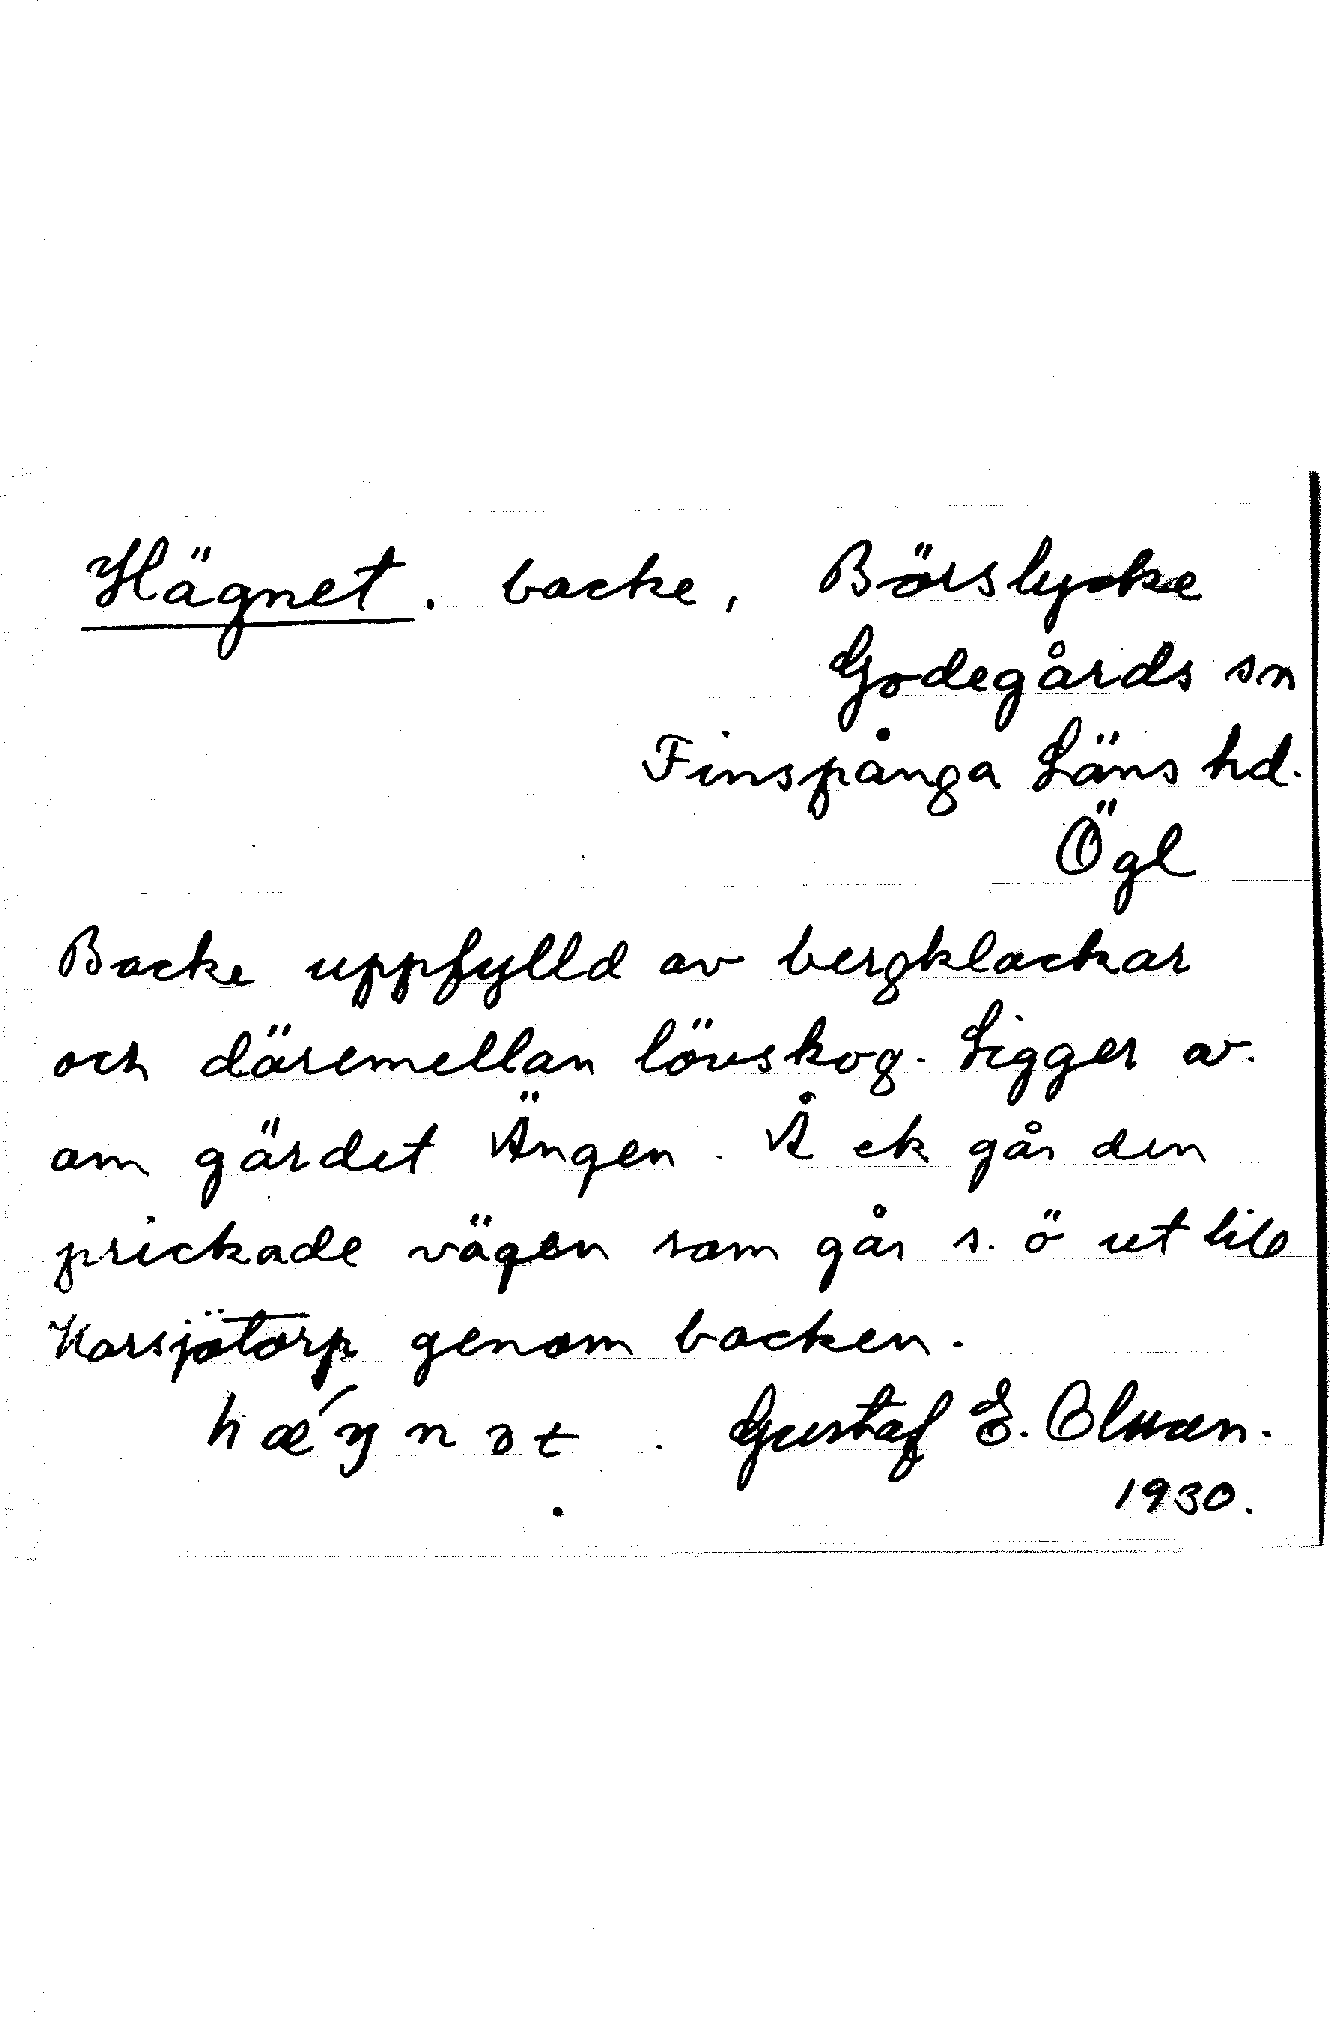 Hägnet. backe, Börslycke
Godegårds sn
Finspånga Läns hd.
Ögl
Backe uppfylld av bergklackar
och däremellan lövskog. Ligger av.
om gärdet Ängen. Å ek går den
prickade vägen som går s. ö ut till
Korsjötorp genom backen.
hǽŋnət. Gustaf E. Olsson.
1930.